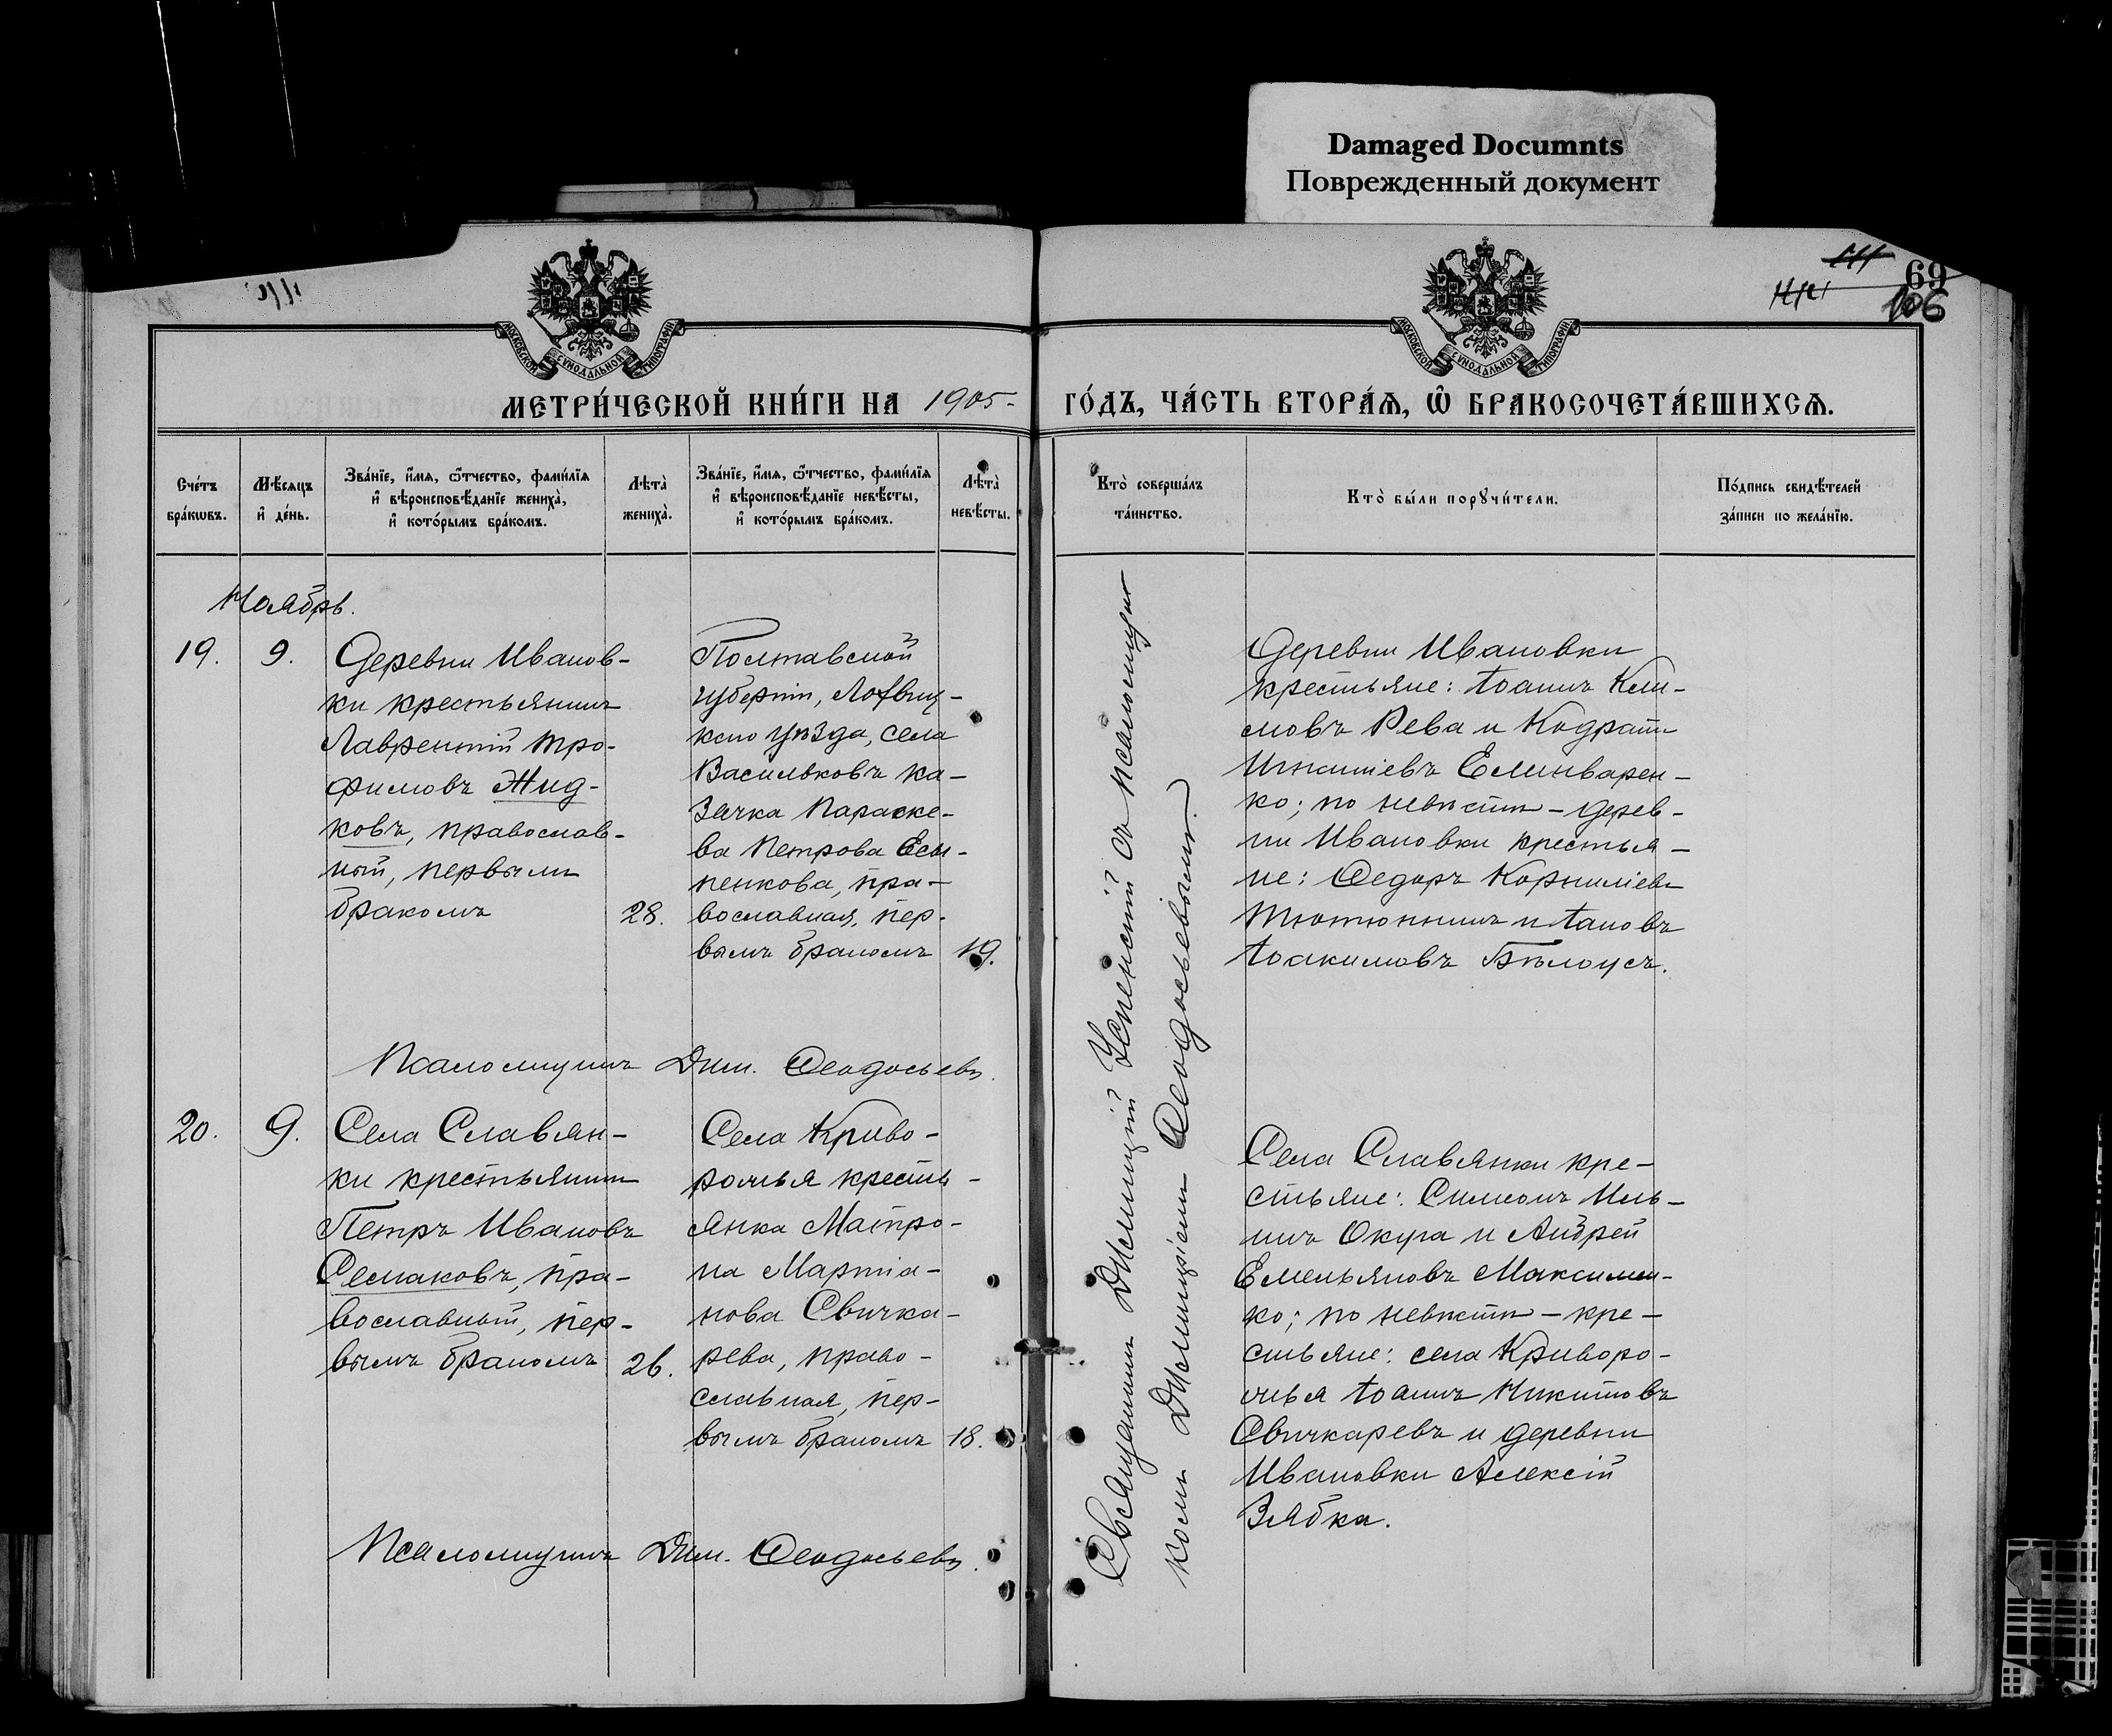 Damaged Documnts
Поврежденный документ
69
106
МОСКОВСКОЙ СѴНОДАЛЬНОЙ ТИПОГРАФІИ
МОСКОВСКОЙ СѴНОДАЛЬНОЙ ТИПОГРАФІИ
МЕТРИ́ЧЕСКОЙ КНИ́ГИ НА 1905-
ГО́ДЪ, ЧА́СТЬ ВТОРА́Ѧ, Ѿ БРАКОСОЧЕТА́ВШИХСѦ.
Сче́тъ
бра́кѡвъ.
Мѣ́сяцъ
и҆ де́нь.
Зва́нїе, и҆́мя, ѻ҆́тчество, фами́лїя
и҆ вѣроисповѣ́данїе жениха̀,
и҆ кото́рымъ бра́комъ.
Лѣта̀
жениха̀.
Зва́нїе, и҆́мя, ѻ҆́тчество, фами́лїя
и҆ вѣроисповѣ́данїе невѣ́сты,
и҆ кото́рымъ бра́комъ.
Лѣта̀
невѣ́сты.
Кто̀ соверша́лъ
та́инство.
Кто̀ бы́ли порꙋчи́тели.
По́дпись свидѣ́телей
за́писи по жела́нїю.
Ноябрь.
19.
9.
Деревни Иванов-
ки крестьянинъ
Лаврентій Тро-
фимовъ Жид-
ковъ, православ-
ный, первымъ
бракомъ
28.
Полтавской
губерніи, Лохвиц-
каго уѣзда, села
Васильковъ ка-
зачка Параске-
ва Петрова Еси-
пенкова, пра-
вославная, пер-
вымъ бракомъ
19.
Деревни Ивановки
крестьяне: Іоаннъ Кли-
мовъ Рева и Кодратъ
Игнатіевъ Елинварен-
ко; по невѣстѣ - дерев-
ни Ивановки крестья-
не: Ѳедоръ Корниліевъ
Тютюнникъ и Іаковъ
Іоакимовъ Бѣлоусъ.
Псаломщикъ Дим. Ѳеодосьевъ.
20.
9.
Села Славян-
ки крестьянинъ
Петръ Ивановъ
Семаковъ, пра-
вославный, пер-
вымъ бракомъ
26.
Села Криво-
рожья кресть-
янка Матро-
на Мартіа-
нова Свичка-
рева, право-
славная, пер-
вымъ бракомъ
18.
Священникъ Димитрій Успенскій съ псаломщи
комъ Димитріемъ Ѳеодосьевымъ.
Села Славянки кре-
стьяне: Симеонъ Иль-
инъ Окура и Андрей
Емельяновъ Максимен-
ко; по невѣстѣ - кре-
стьяне: села Криворо-
жья Іоаннъ Никитовъ
Свичкаревъ и деревни
Ивановки Алексій
Зябка.
Псаломщикъ Дим. Ѳеодосьевъ.